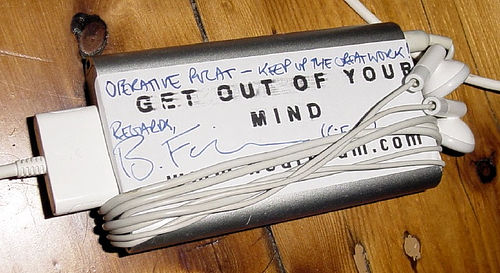 OPERATIVE PVLAT - KEEP UP THE GREAT WORK!
GET OUT OF YOUR
MIND
REGARDS,
B.
.com